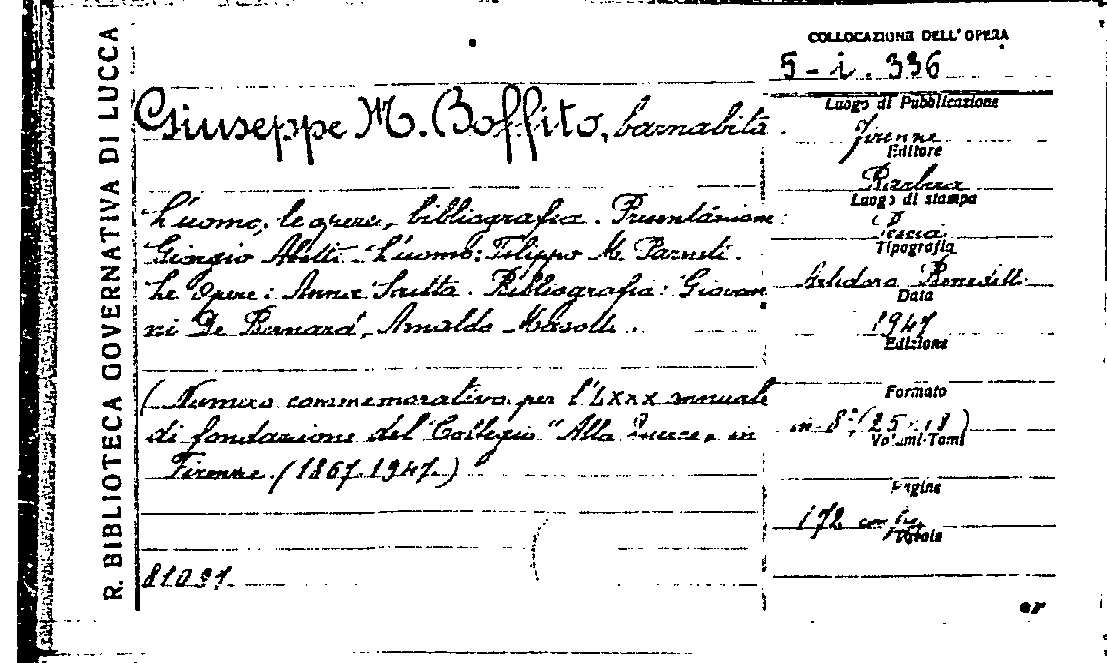 R. BIBLIOTECA GOVERNATIVA DI LUCCA
COLLOCAZIONE DELL' OPERA
5-i. 336
Giuseppe M. Boffito, barnabita.
L'uomo, le opere, bibliografia. Presentazione:
Giorgio Abetti. L'uomo: Filippo M. Parenti.
Le opere: Anna Saitta. Bibliografia: Giovan
ni De Bernard, Arnaldo Masotti.
(Numero commemorativo per l'LXXX annuale
di fondazione del Collegio "Alla Querce, in
Firenze. (1867-1947.)
81091
Luogo di Pubblicazione
Firenze
Editore
Barbera
Luogo di stampa
Pescia
Tipografia
Artidoro Benedetti
Data
1947
Edizione
Formato
in-8° (25×18)
Volumi-Tomi
Pagine
172 con
Tavole
er